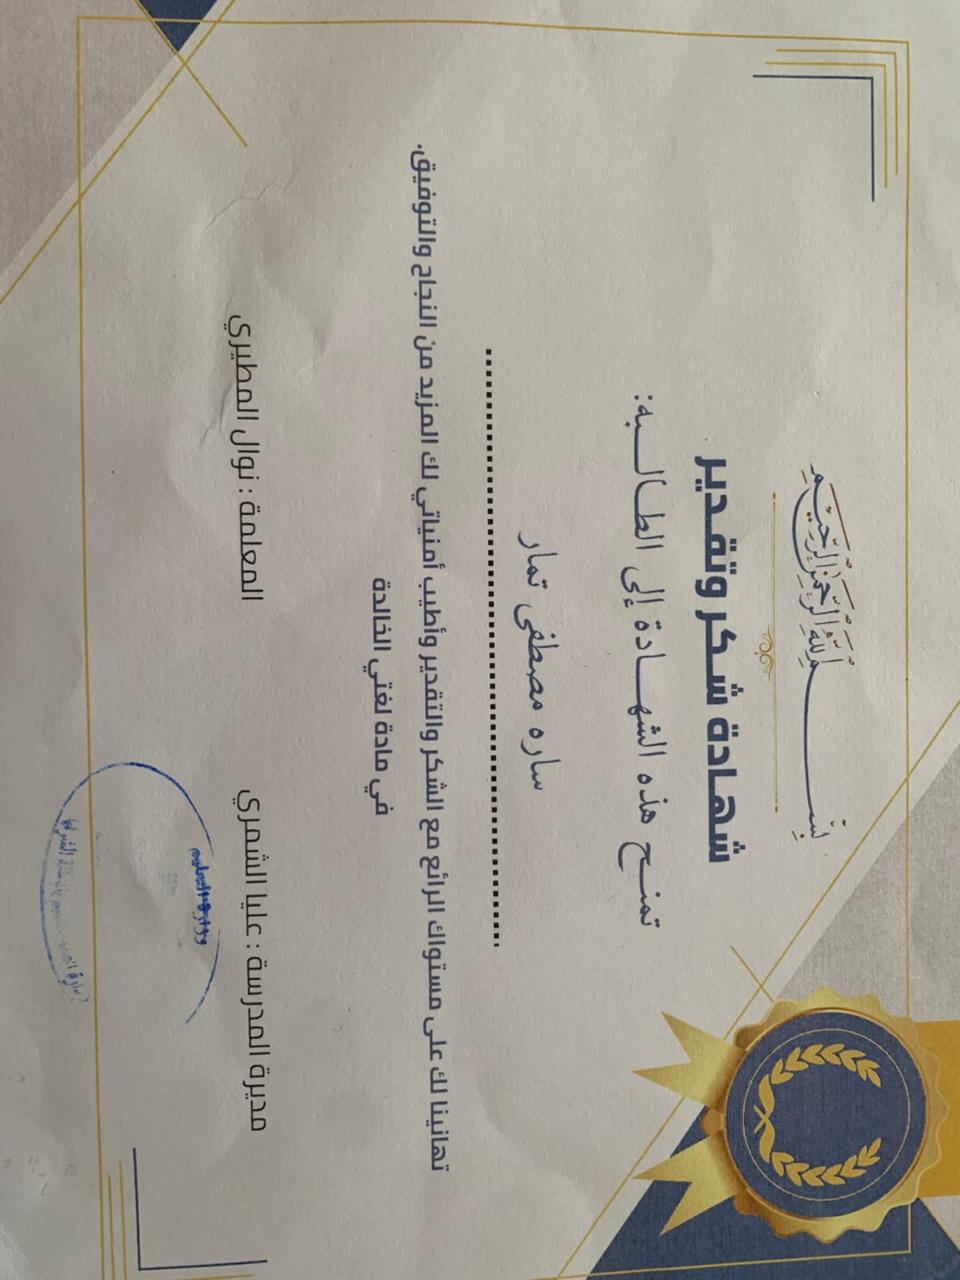 بسم الله الرحمن الرحيم
شهادة شكر وتقدير
تمنح هذه الشهادة إلى الطالبه:
ساره مصطفى تمار
تهانينا لك على مستواك الرائع مع الشكر والتقدير وأطيب أمنياتي لك المزيد من النجاح والتوفيق.
في مادة لغتي الخالدة
مديرة المدرسة : عليا الشمري
المعلمة : نوال المطيري
وزارة التعليم